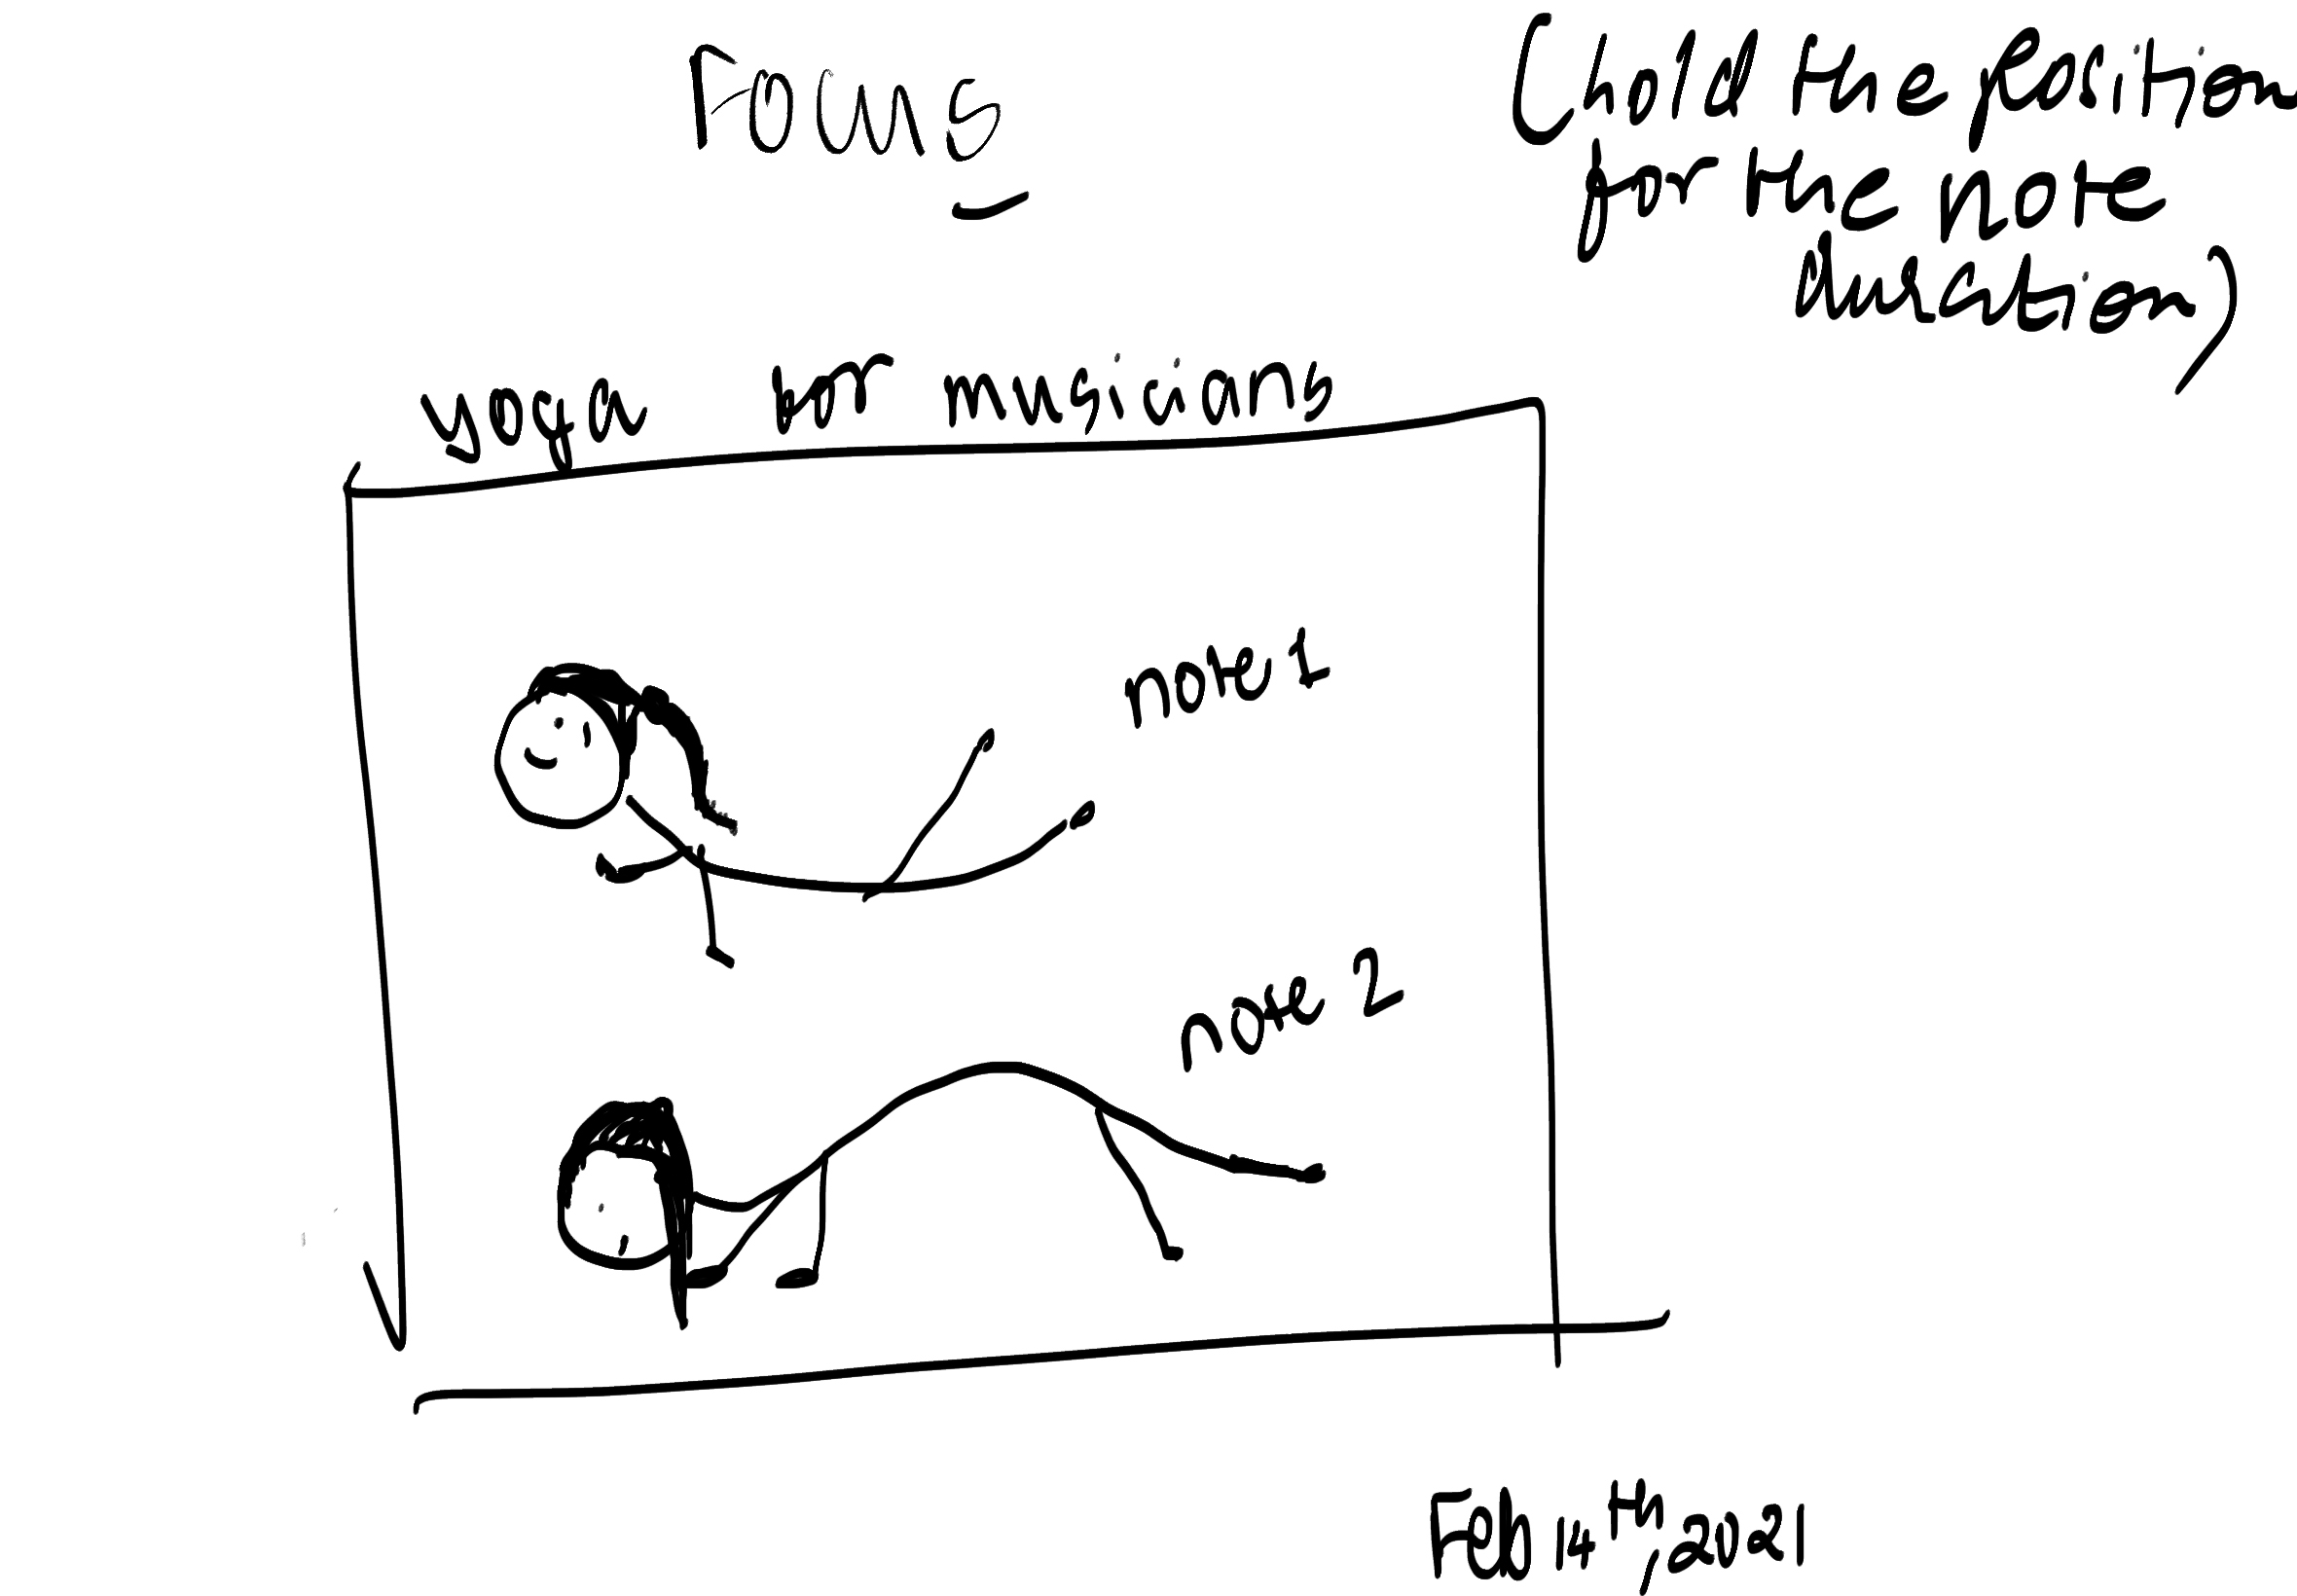 Focus
(hold the position
for the note
duration)
yoga for musicians
note 1
note 2
Feb 14th, 2021